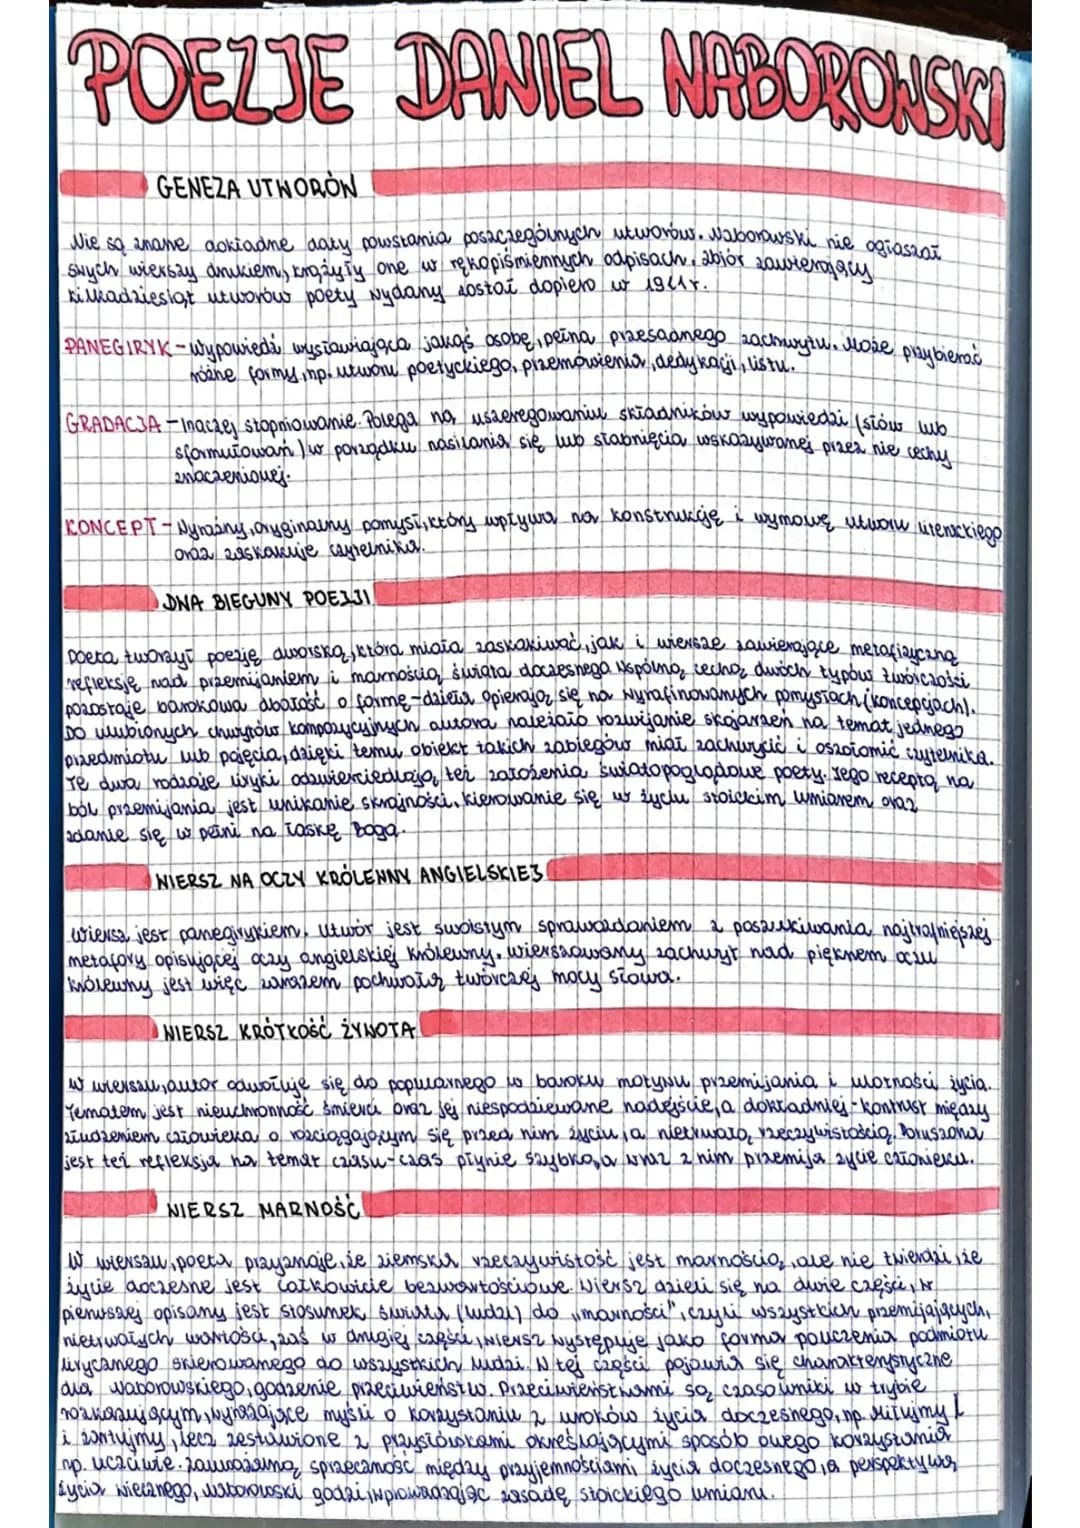 POEZJE DANIEL NABOROWSKI
GENEZA UTWORÓW
Nie są znane dokładne daty powstania poszczególnych utworów. Naborowski nie ogłaszał
swych wierszy drukiem, krążyły one w rękopiśmiennych odpisach. zbiór zawierający
kilkadziesiąt utworów poety wydany został dopiero w r.
PANEGIRYK - Wypowiedź wysławiająca jakąś osobę, pełna przesadnego zachwytu. Może przybierać
różne formy, np. utworu poetyckiego, przemówienia, dedykacji, listu.
GRADACJA - Inaczej stopniowanie. Polega na uszeregowaniu składników wypowiedzi (słów lub
sformułowań) w porządku nasilania się lub słabnięcia wskazywanej przez nie cechy
znaczeniowej.
KONCEPT - Wyraźny, oryginalny pomysł, który wpływa na konstrukcję i wymowę utworu literackiego
oraz zaskakuje czytelnika.
DWA BIEGUNY POEZJI
Poeta tworzył poezję dworską, która miała zaskakiwać, jak i wiersze zawierające metafizyczną
refleksję nad przemijaniem i marnością świata doczesnego. Wspólną cechą dwóch typów twórczości
pozostaje barokowa dbałość o formę - dzieła opierają się na wyrafinowanych pomysłach (koncepcjach).
Do ulubionych chwytów kompozycyjnych autora należało rozwijanie skojarzeń na temat jednego
przedmiotu lub pojęcia, dzięki temu obiekt takich zabiegów miał zachwycić i oszołomić czytelnika.
Te dwa rodzaje liryki odzwierciedlają też założenia światopoglądowe poety. Jego receptą na
ból przemijania jest unikanie skrajności, kierowanie się w życiu stoickim umiarem oraz
zdanie się w pełni na łaskę Boga.
WIERSZ NA OCZY KRÓLEWNY ANGIELSKIEJ
Wiersz jest panegirykiem. Utwór jest swoistym sprawozdaniem z poszukiwania najtrafniejszej
metafory opisującej oczy angielskiej królewny. wierszowany zachwyt nad pięknem oczu
królewny jest więc zarazem pochwałą twórczej mocy słowa.
WIERSZ KRÓTKOŚĆ ŻYWOTA
W wierszu, autor odwołuje się do popularnego w baroku motywu przemijania i ulotności życia.
Tematem jest nieuchronność śmierci oraz jej niespodziewane nadejście, a dokładniej - kontrast między
złudzeniem człowieka o rozciągającym się przed nim życiu, a nietrwałą rzeczywistością. Poruszona
jest też refleksja na temat czasu - czas płynie szybko, a wraz z nim przemija życie człowieka.
WIERSZ MARNOŚĆ
W wierszu, poeta przyznaje, że ziemska rzeczywistość jest marnością, ale nie twierdzi, że
życie doczesne jest całkowicie bezwartościowe. Wiersz dzieli się na dwie części, w
pierwszej opisany jest stosunek świata (ludzi) do "marności", czyli wszystkich przemijających,
nietrwałych wartości, zaś w drugiej części, wiersz występuje jako forma pouczenia podmiotu
lirycznego skierowanego do wszystkich ludzi. W tej części pojawia się charakterystyczne
dla Naborowskiego, godzenie przeciwieństw. Przeciwieństwami są czasowniki w trybie
rozkazującym, wyrażające myśli o korzystaniu z uroków życia doczesnego, np. Miłujmy
i żartujmy, lecz zestawione z przysłówkami określającymi sposób owego korzystania
np. uczciwie. zauważalną sprzeczność między przyjemnościami życia doczesnego, a perspektywą
życia wiecznego, Naborowski godzi, wprowadzając zasadę stoickiego umiaru.